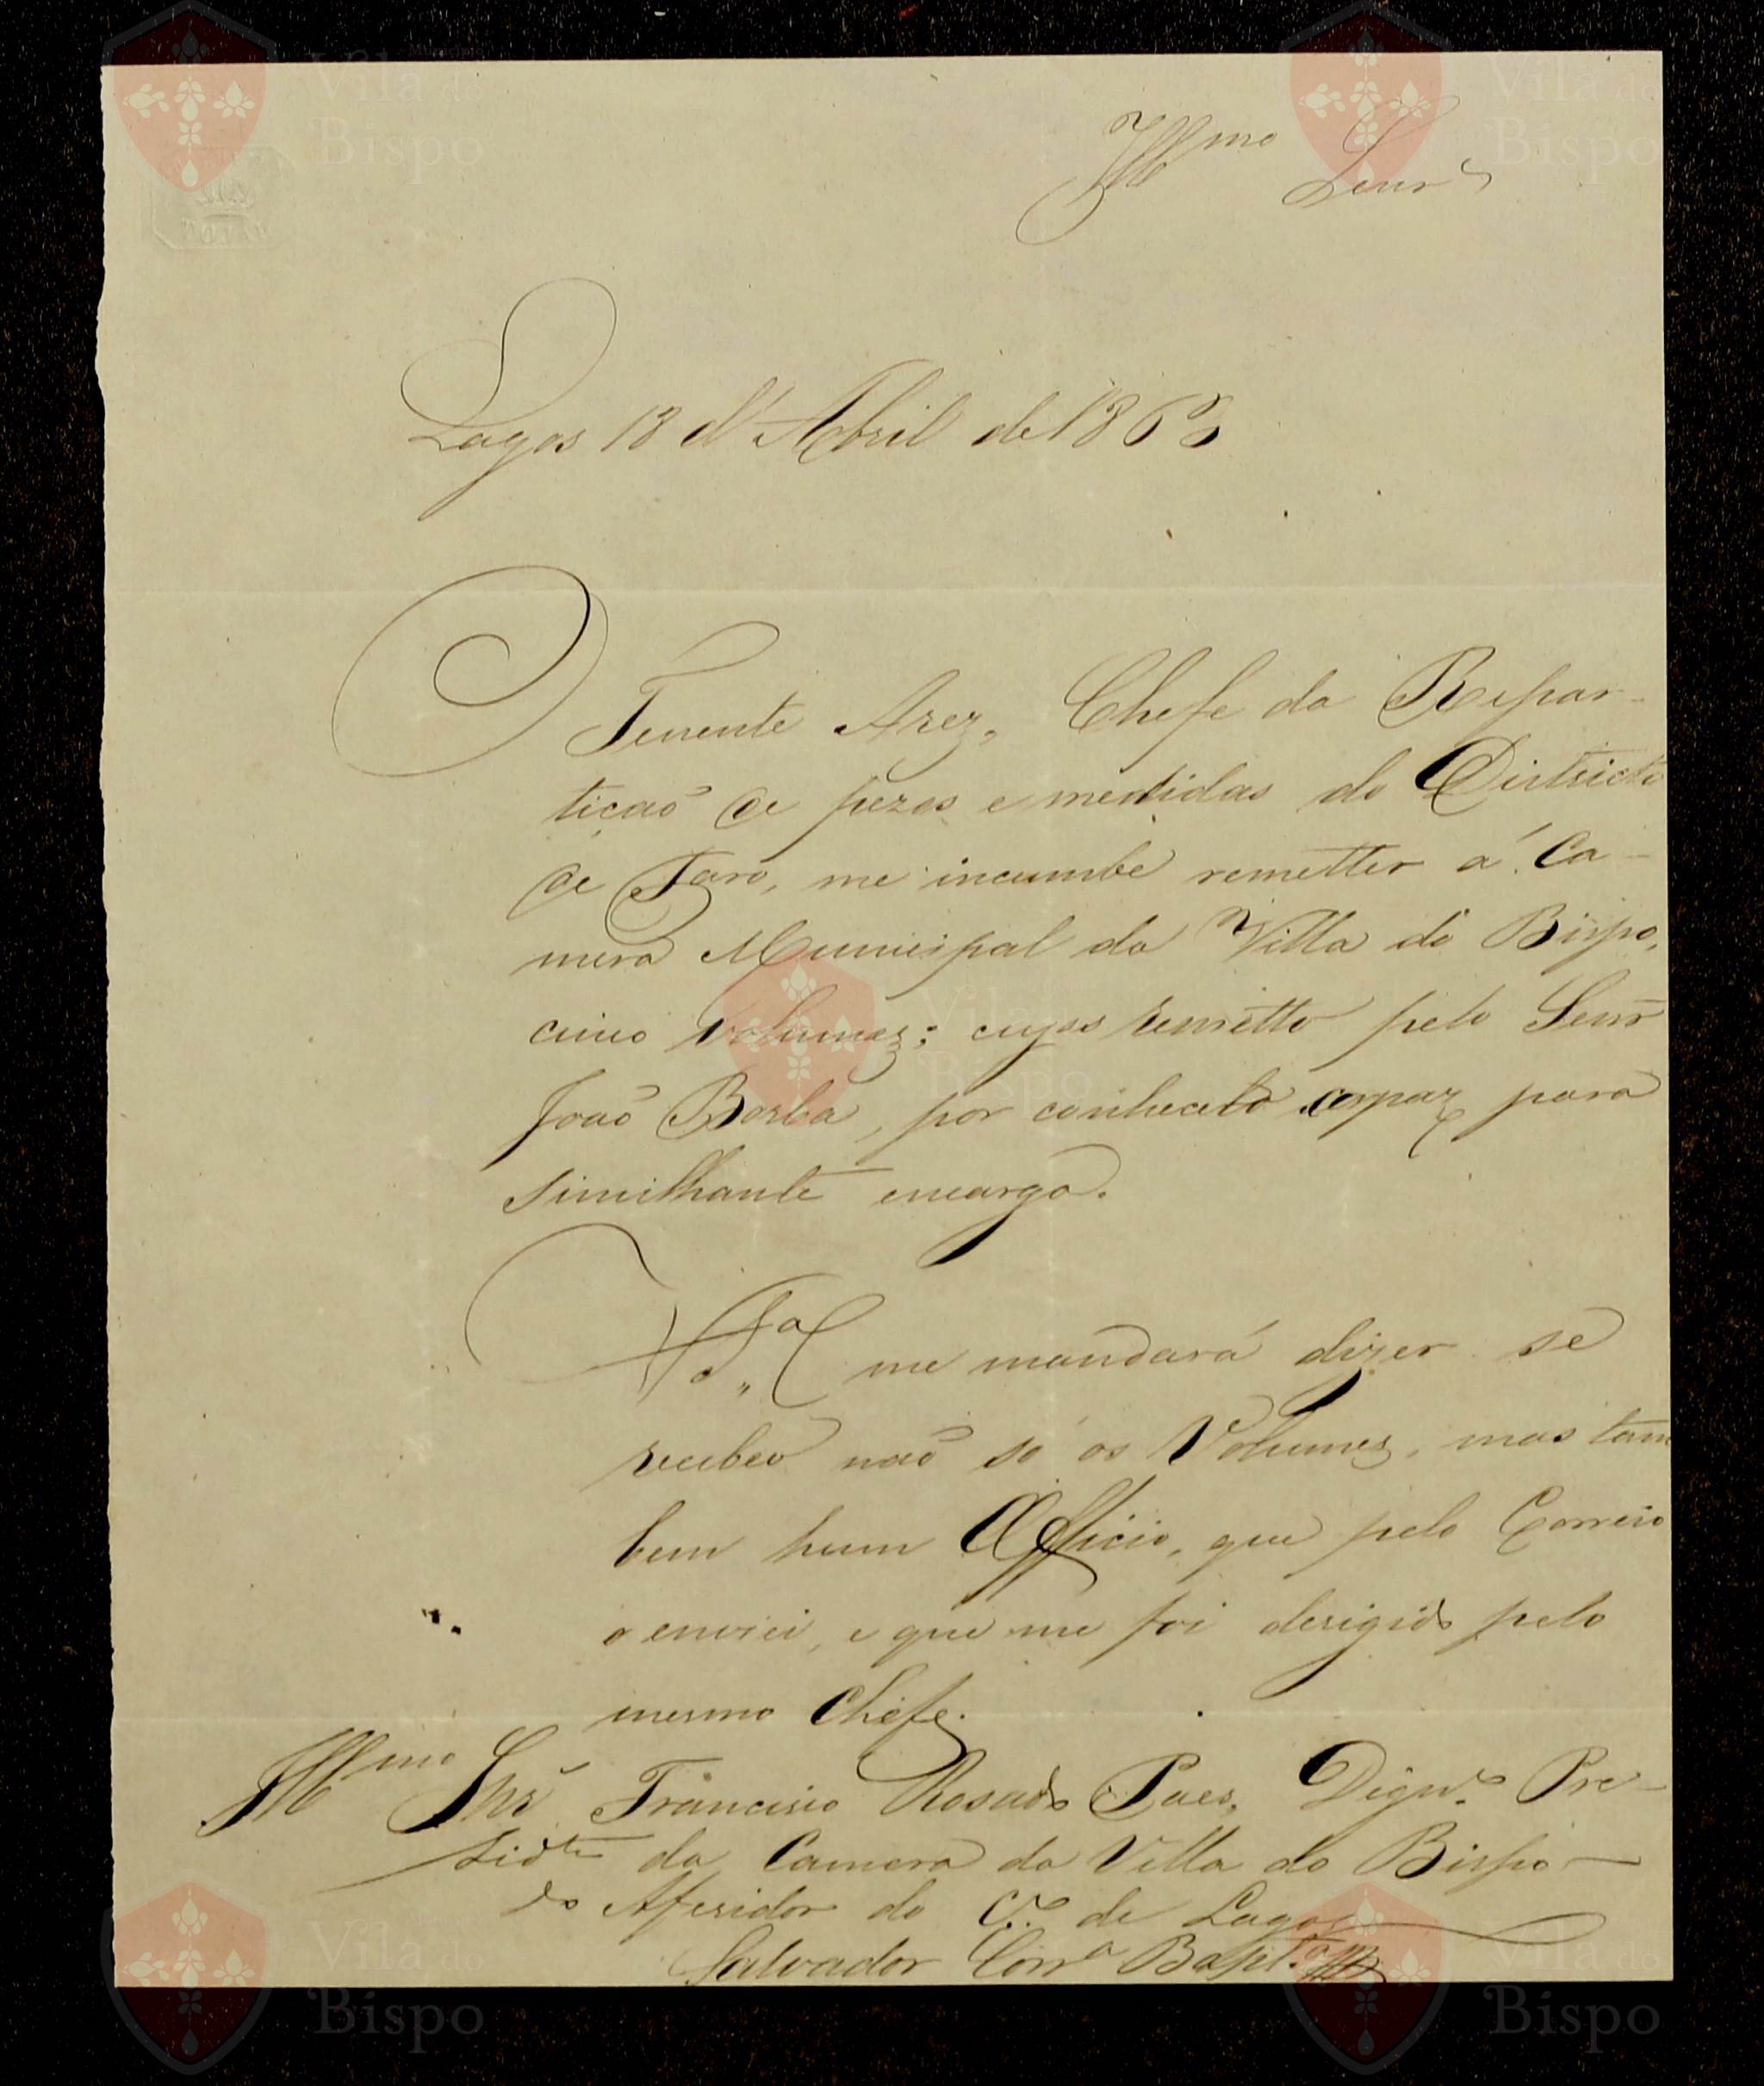 Illmo Senr
Lagos 18 d'Abril de 1863
O Tenente Arez, Chefe da Repar-
tiçaõ de pezos e medidas do Districto
de Faro, me incumbe remetter á Ca-
mera Municipal da Villa do Bispo,
cinco volumes; cujos remetto pelo Senr
Joaõ Borba, por conhecelo capaz para
similhante encargo.
V. Sa me mandará dizer se
recebeo naõ só os Volumes, mas tam
bem hum Officio, que pelo Correio
o enviei, e que me foi derigido pelo
mesmo Chefe.
Illmo Snr Francisco Rosado Paes, Digno Pre-
sidte da Camera da Villa do Bispo
do Aferidor do C.º de Lagos
Salvador Corra Bapta
Vila do Bispo
Vila do Bispo
Vila do Bispo
Vila do Bispo
Vila do Bispo